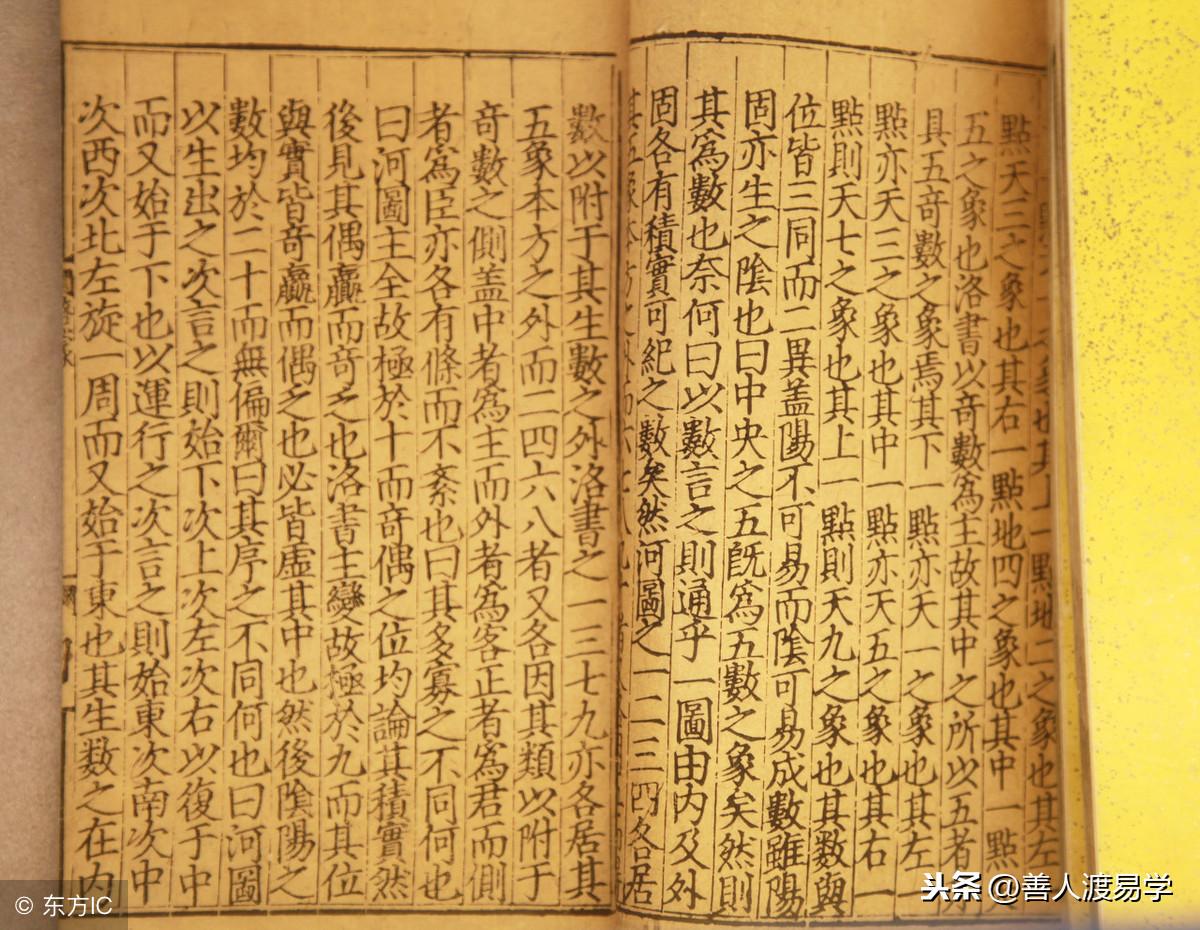 一點地二之象也其左
點天三之象也其右一點地四之象也其中一點
五之象也洛書以奇數為主故其中之所以五者亦
具五奇數之象焉其下一點亦天一之象也其左一
點亦天三之象也其中一點亦天五之象也其右一
點則天七之象也其上一點則天九之象也其數與
位皆三同而二異蓋陽不可易而陰可易成數雖陽
固亦生之陰也曰中央之五旣爲五數之象矣然則
其爲數也奈何曰以數言之則通乎一圖由內及外
固各有積實可紀之數矣然河圖之一二三四各居
數以附于其生數之外洛書之一三七九亦各居其
五象本方之外而二四六八者又各因其類以附于
奇數之側盖中者爲主而外者爲客正者爲君而側
者爲臣亦各有條而不紊也曰其多寡之不同何也
曰河圖主全故極於十而奇偶之位均論其積實然
後見其偶贏而奇乏也洛書主變故極於九而其位
與實皆奇贏而偶乏也必皆虚其中也然後陰陽之
數均於二十而無偏爾曰其序之不同何也曰河圖
以生出之次言之則始下次上次左次右以復于中
而又始于下也以運行之次言之則始東次南次中
次西次北左旋一周而又始于東也其生数之在内
头条 @善人渡易学
© 东方IC